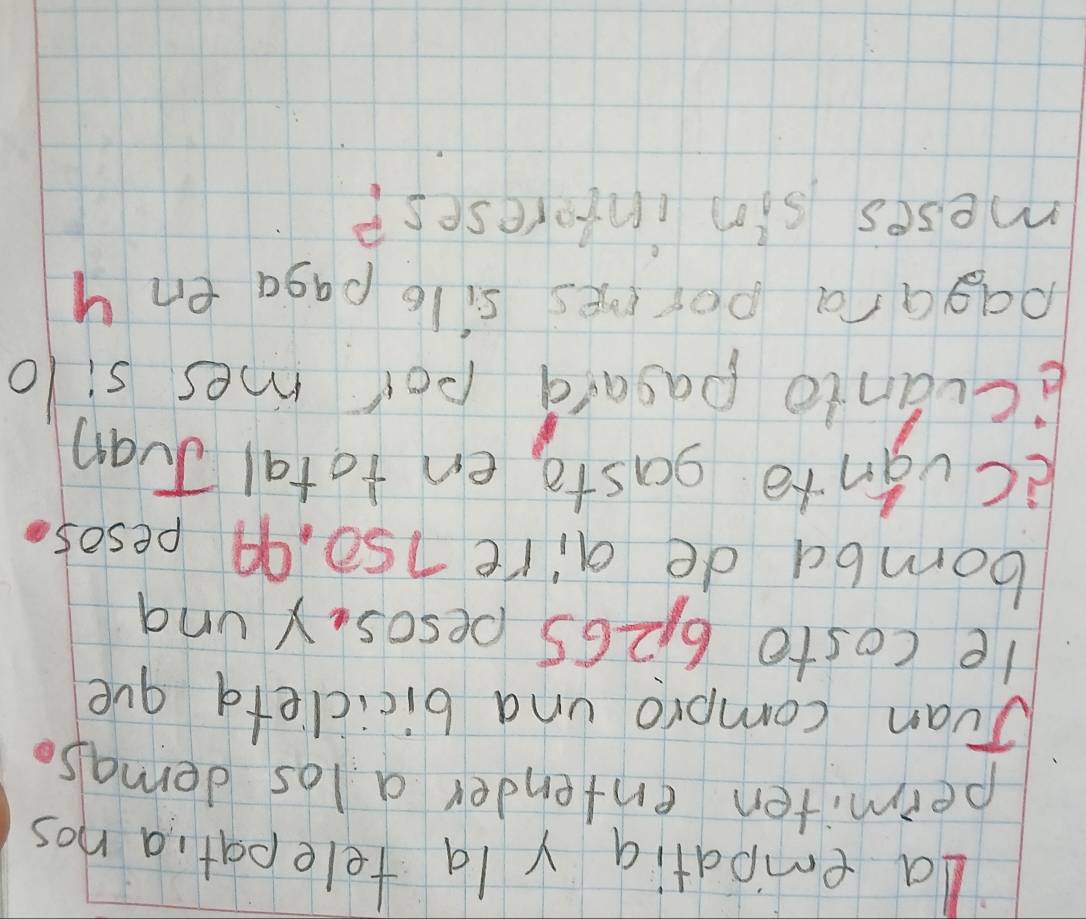 La empatia y la telepatia nos
permiten entender a los demas.
Juan compró una bicicleta que
le costo 6,265 pesos. Y una
bomba de aire 750.99 pesos.
¿Cuánto gastó en total Juan
¿Cuánto pagará por mes si lo
pagara por mes si lo paga en 4
meses sin intereses?